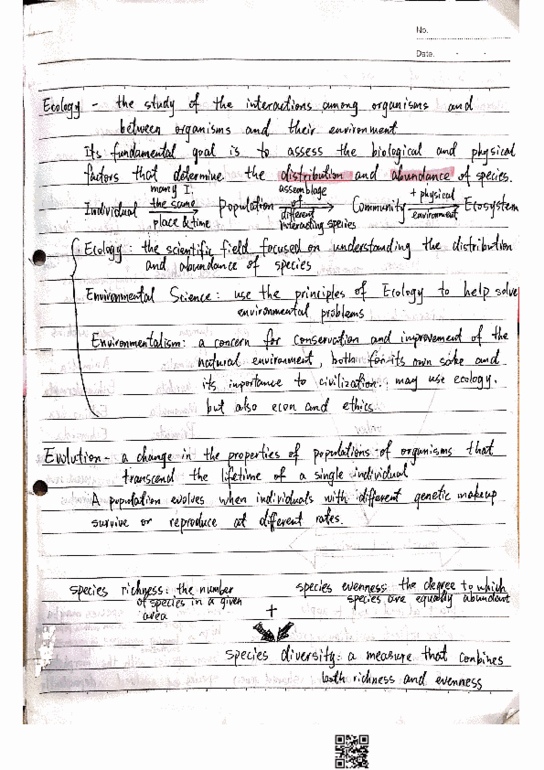 No.
Date.
Ecology - the study of the interactions among organisms and
between organisms and their environment
Its fundamental goal is to assess the biological and physical
factors that determine the distribution and abundance of species.
many I, assemblage + physical
Individual the same Population of Community environment Ecosystem
place & time different
interacting species
Ecology: the scientific field focused on understanding the distribution
and abundance of species
Environmental Science: use the principles of Ecology to help solve
environmental problems
Environmentalism: a concern for conservation and improvement of the
natural environment, both for its own sake and
its importance to civilization. may use ecology.
but also econ and ethics
Evolution - a change in the properties of populations of organisms that
transcend the lifetime of a single individual
A population evolves when individuals with different genetic makeup
survive or reproduce at different rates.
species richness: the number species evenness: the degree to which
of species in a given species are equally abundant
area +
species diversity: a measure that conbines
both richness and evenness